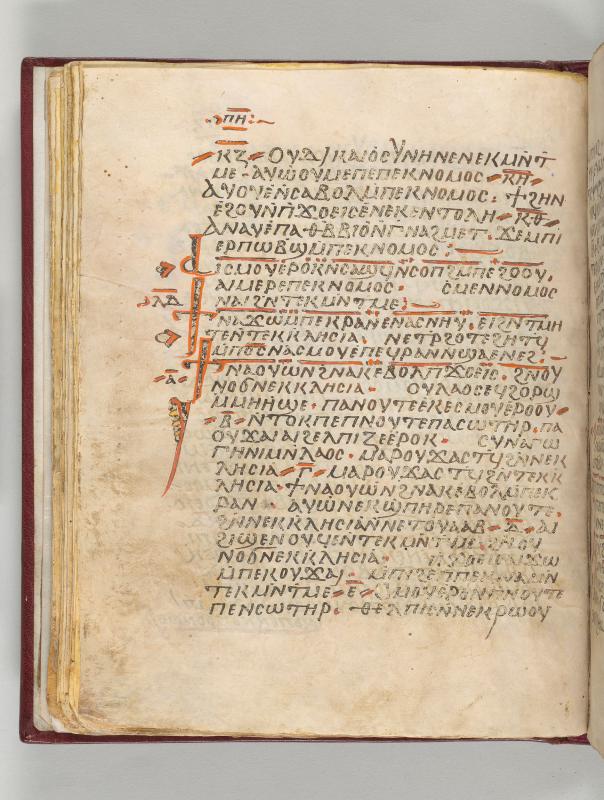 ⲡⲏ
ⲕⲍ ⲟⲩⲇⲓⲕⲁⲓⲟⲥ ⲛⲉⲛⲉⲕⲙⲛⲧ
ⲙⲉ ⲁⲩⲱ ⲟⲩⲙⲉ ⲡⲉ ⲡⲉⲕⲛⲟⲙⲟⲥ ⲕⲏ
ⲥⲁⲃⲟⲗ ⲙⲡⲉⲕⲛⲟⲙⲟⲥ ϯϩⲏⲛ
ⲉϩⲟⲩⲛ ⲡϫⲟⲉⲓⲥ ⲉⲛⲉⲕⲉⲛⲧⲟⲗⲏ ⲕⲑ
ϫⲉⲙⲡⲓ
ⲉⲣⲡⲱⲃϣ ⲙⲡⲉⲕⲛⲟⲙⲟⲥ
ⲥⲙⲟⲩ ⲉⲣⲟⲕ ⲛⲥⲁϣϥ ⲛⲥⲟⲡ ϩⲙⲡⲉϩⲟⲟⲩ
ⲁⲓⲙⲉⲣⲉⲡⲉⲕⲛⲟⲙⲟⲥ ⲥⲙⲉⲛⲛⲟⲙⲟⲥ
ⲗⲇ ⲛⲁⲓ ϩⲛⲧⲉⲕⲙⲛⲧⲙⲉ
ϯⲛⲁϫⲱ ⲙⲡⲉⲕⲣⲁⲛ ⲉⲛⲁⲥⲛⲏⲩ ⲉⲓϩⲛⲧⲙⲏ
ⲧⲉ ⲛⲧⲉⲕⲕⲗⲏⲥⲓⲁ ⲛⲉⲧⲣϩⲟⲧⲉ ϩⲏⲧϥ
ⲙⲡⲟⲥ ⲛⲁⲥⲙⲟⲩ ⲉⲡⲉϥⲣⲁⲛ ϣⲁⲉⲛⲉϩ
ⲁ ϯⲛⲁⲟⲩⲱⲛϩ ⲛⲁⲕ ⲉⲃⲟⲗ ⲡϫⲟⲉⲓⲥ ϩⲛⲟⲩ
ⲛⲟϭ ⲛⲉⲕⲕⲗⲏⲥⲓⲁ ⲟⲩⲗⲁⲟⲥ ⲉϥϩⲟⲣϣ
ⲙⲙⲏⲏϣⲉ ⲡⲁⲛⲟⲩⲧⲉ ⲉⲕⲉⲥⲙⲟⲩ ⲉⲣⲟⲟⲩ
ⲃ ⲛⲧⲟⲕ ⲡⲉ ⲡⲛⲟⲩⲧⲉ ⲡⲁⲥⲱⲧⲏⲣ ⲡⲁ
ⲟⲩϫⲁⲓ ⲁⲓϩⲉⲗⲡⲓⲍⲉ ⲉⲣⲟⲕ ⲥⲩⲛⲁⲅⲱ
ⲅⲏ ⲛⲓⲙ ⲛⲗⲁⲟⲥ ⲙⲁⲣⲟⲩϫⲁⲥⲧϥ ϩⲛⲛⲉⲕ
ⲕⲗⲏⲥⲓⲁ ⲅ ⲙⲁⲣⲟⲩϫⲁⲥⲧϥ ϩⲛⲧⲉⲕⲕ
ⲗⲏⲥⲓⲁ ϯⲛⲁⲟⲩⲱⲛϩ ⲛⲁⲕ ⲉⲃⲟⲗ ⲙⲡⲉⲕ
ⲣⲁⲛ ⲁⲩⲱ ⲛⲉⲕϣⲡⲏⲣⲉ ⲡⲁⲛⲟⲩⲧⲉ
ϩⲛⲛⲉⲕⲕⲗⲏⲥⲓⲁ ⲛⲛⲉⲧⲟⲩⲁⲁⲃ ⲇ ⲁⲓ
ⲧⲉⲕⲙⲛⲧⲙⲉ ϩⲛⲟⲩ
ⲛⲟϭ ⲛⲉⲕⲕⲗⲏⲥⲓⲁ ⲡϫⲟⲉⲓⲥ ⲁⲓϫⲱ
ⲙⲡⲉⲕⲟⲩϫⲁⲓ ⲙⲡⲓϩⲉⲡ ⲡⲉⲕⲛⲁ ⲙⲛ
ⲧⲉⲕⲙⲛⲧⲙⲉ ⲉ ⲥⲙⲟⲩ ⲉⲣⲟⲕ ⲡⲛⲟⲩⲧⲉ
ⲡⲉⲛⲥⲱⲧⲏⲣ ⲑⲉⲗⲡⲓⲥ ⲛⲛⲉⲕⲣⲱⲟⲩ